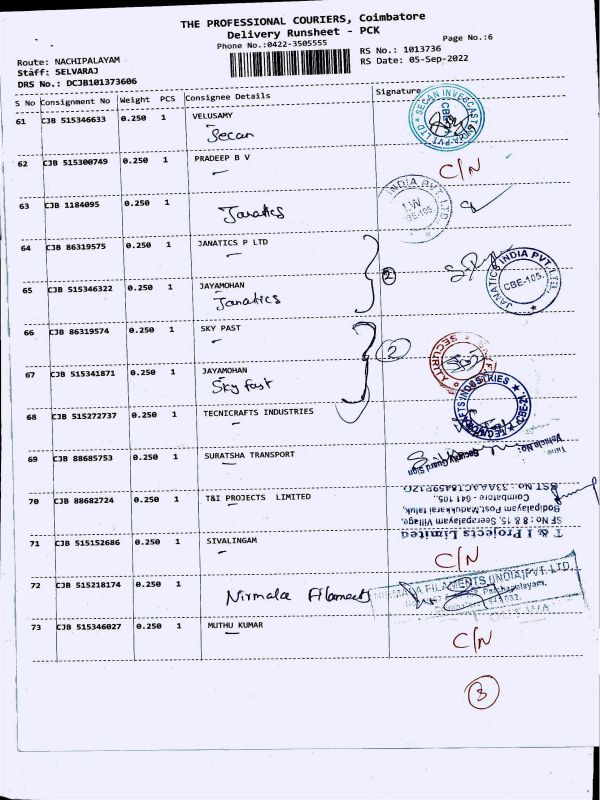 THE PROFESSIONAL COURIERS, Coimbatore
Delivery Runsheet - PCK
Phone No.:0422-3505555
Page No.:6
Route: NACHIPALAYAM
RS No.: 1013736
Staff: SELVARAJ
RS Date: 05-Sep-2022
DRS No.: DCJB101373606
S No Consignment No Weight PCS Consignee Details Signature
61 CJB 515346633 0.250 1 VELUSAMY
Secan
62 CJB 515300749 0.250 1 PRADEEP B V
C/N
63 CJB 1184095 0.250 1
Janatics
INDIA PVT. LTD
64 CJB 86319575 0.250 1 JANATICS P LTD
2
JANATICS INDIA PVT. LTD.
CBE-105.
65 CJB 515346322 0.250 1 JAYAMOHAN
Janatics
66 CJB 86319574 0.250 1 SKY PAST
2
SECURITY
67 CJB 515341871 0.250 1 JAYAMOHAN
Sky fast
68 CJB 515272737 0.250 1 TECNICRAFTS INDUSTRIES
69 CJB 88685753 0.250 1 SURATSHA TRANSPORT
Time
Vehicle No:
Security Guard Sign
70 CJB 88682724 0.250 1 T&I PROJECTS LIMITED
T & I Projects Limited
SF No : 15, Seerapalayam Village,
Bodipalayam Post, Madukkarai taluk,
Coimbatore - 641 105.
71 CJB 515152686 0.250 1 SIVALINGAM
C/N
72 CJB 515218174 0.250 1
Nirmala Filaments
NIRMALA FILAMENTS (INDIA) PVT. LTD.
73 CJB 515346027 0.250 1 MUTHU KUMAR
C/N
3